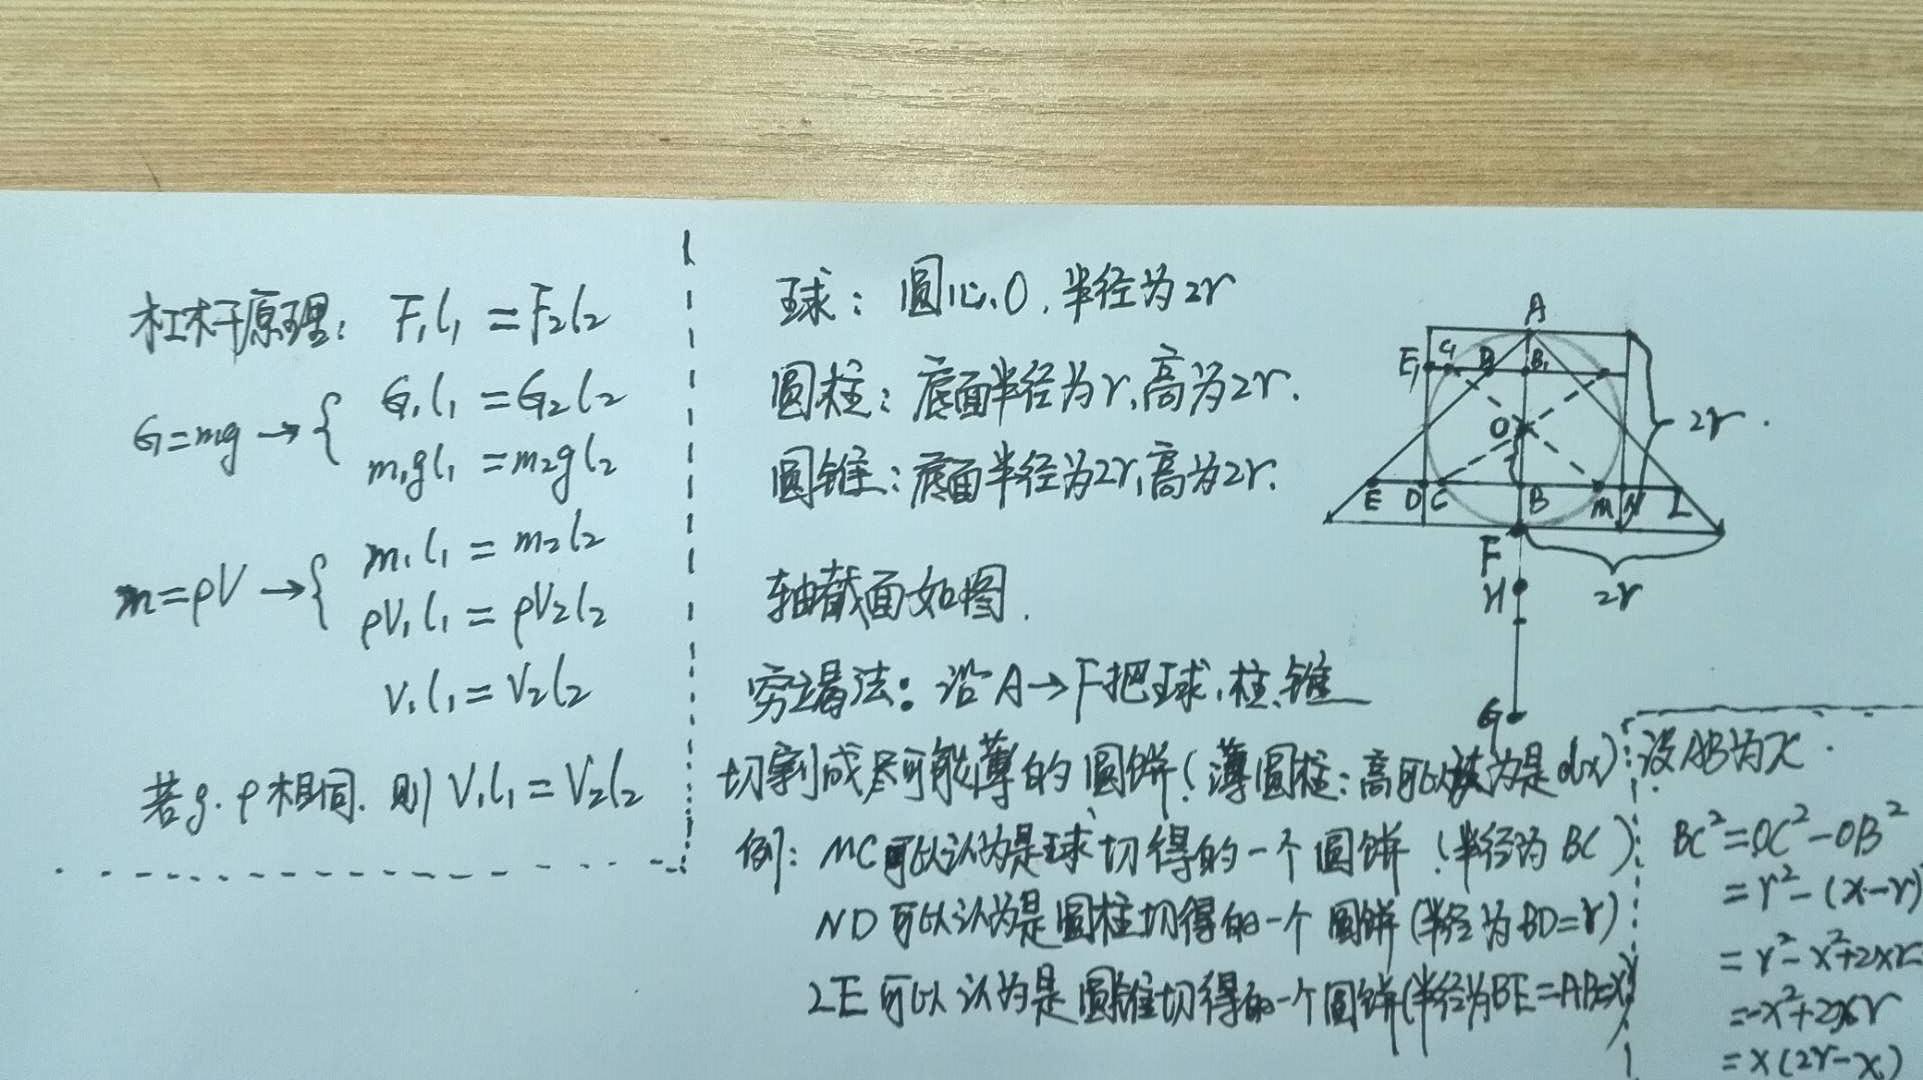 杠杆原理： F₁l₁ = F₂l₂
G=mg → { G₁l₁ = G₂l₂
m₁gl₁ = m₂gl₂
m=ρV → { m₁l₁ = m₂l₂
ρV₁l₁ = ρV₂l₂
V₁l₁ = V₂l₂
若g.ρ相同. 则 V₁l₁ = V₂l₂
球：圆心O，半径为2r
圆柱：底面半径为r，高为2r.
圆锥：底面半径为2r，高为2r.
轴截面如图.
穷竭法：沿A→F把球、柱、锥
切割成尽可能薄的圆饼（薄圆柱：高可以认为是dx）
例：MC可以认为是球切得的一个圆饼（半径为BC）
ND可以认为是圆柱切得的一个圆饼（半径为BD=r）
LE可以认为是圆锥切得的一个圆饼（半径为BE=AB=x）
A
E₁ C₁ B₁
O
2r.
E D C B M N L
F
H
2r
G
设AB为x.
BC²=OC²-OB²
=r²-(x-r)
=r²-x²+2xr
=-x²+2xr
=x(2r-x)